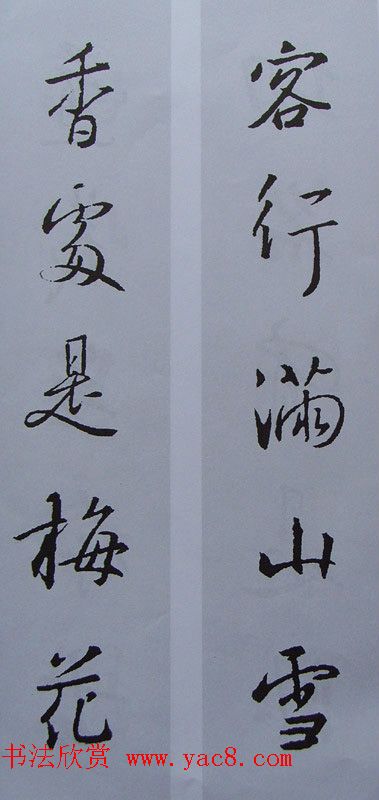 客行满山雪
香處是梅花
书法欣赏 www.yac8.com